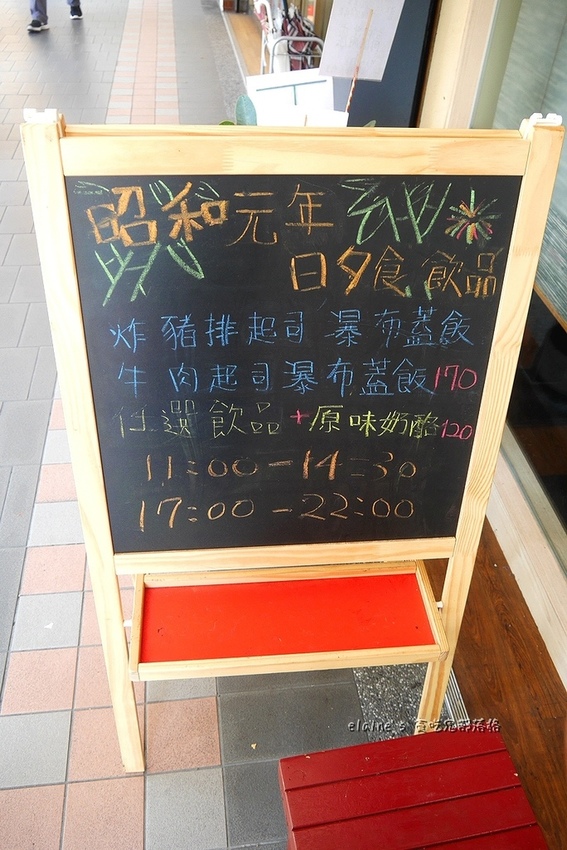 昭和元年
日夕食 飲品
炸豬排起司瀑布蓋飯
牛肉起司瀑布蓋飯170
任選飲品+原味奶酪120
11:00-14:30
17:00-22:00
elaine's 貪吃鬼部落格